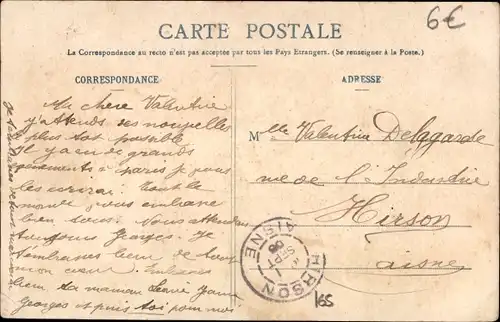 6€
CARTE POSTALE
La Correspondance au recto n'est pas acceptée par tous les Pays Etrangers. (Se renseigner à la Poste.)
CORRESPONDANCE
ADRESSE
Ma chère Valentine
j'attends des nouvelles
le plus tôt possible
Il y a eu de grands
à paris je vous
les écrirai. Tout le
monde vous embrasse
bien tous. Nous attendons
toujours Georges. Je
t'embrasse bien de tout
mon cœur. Embrasse
bien ta maman
Georges et puis toi pour moi
Mlle Valentine Delagarde
rue de l'Industrie
Hirson
aisne
HIRSON
AISNE
SEPT
165